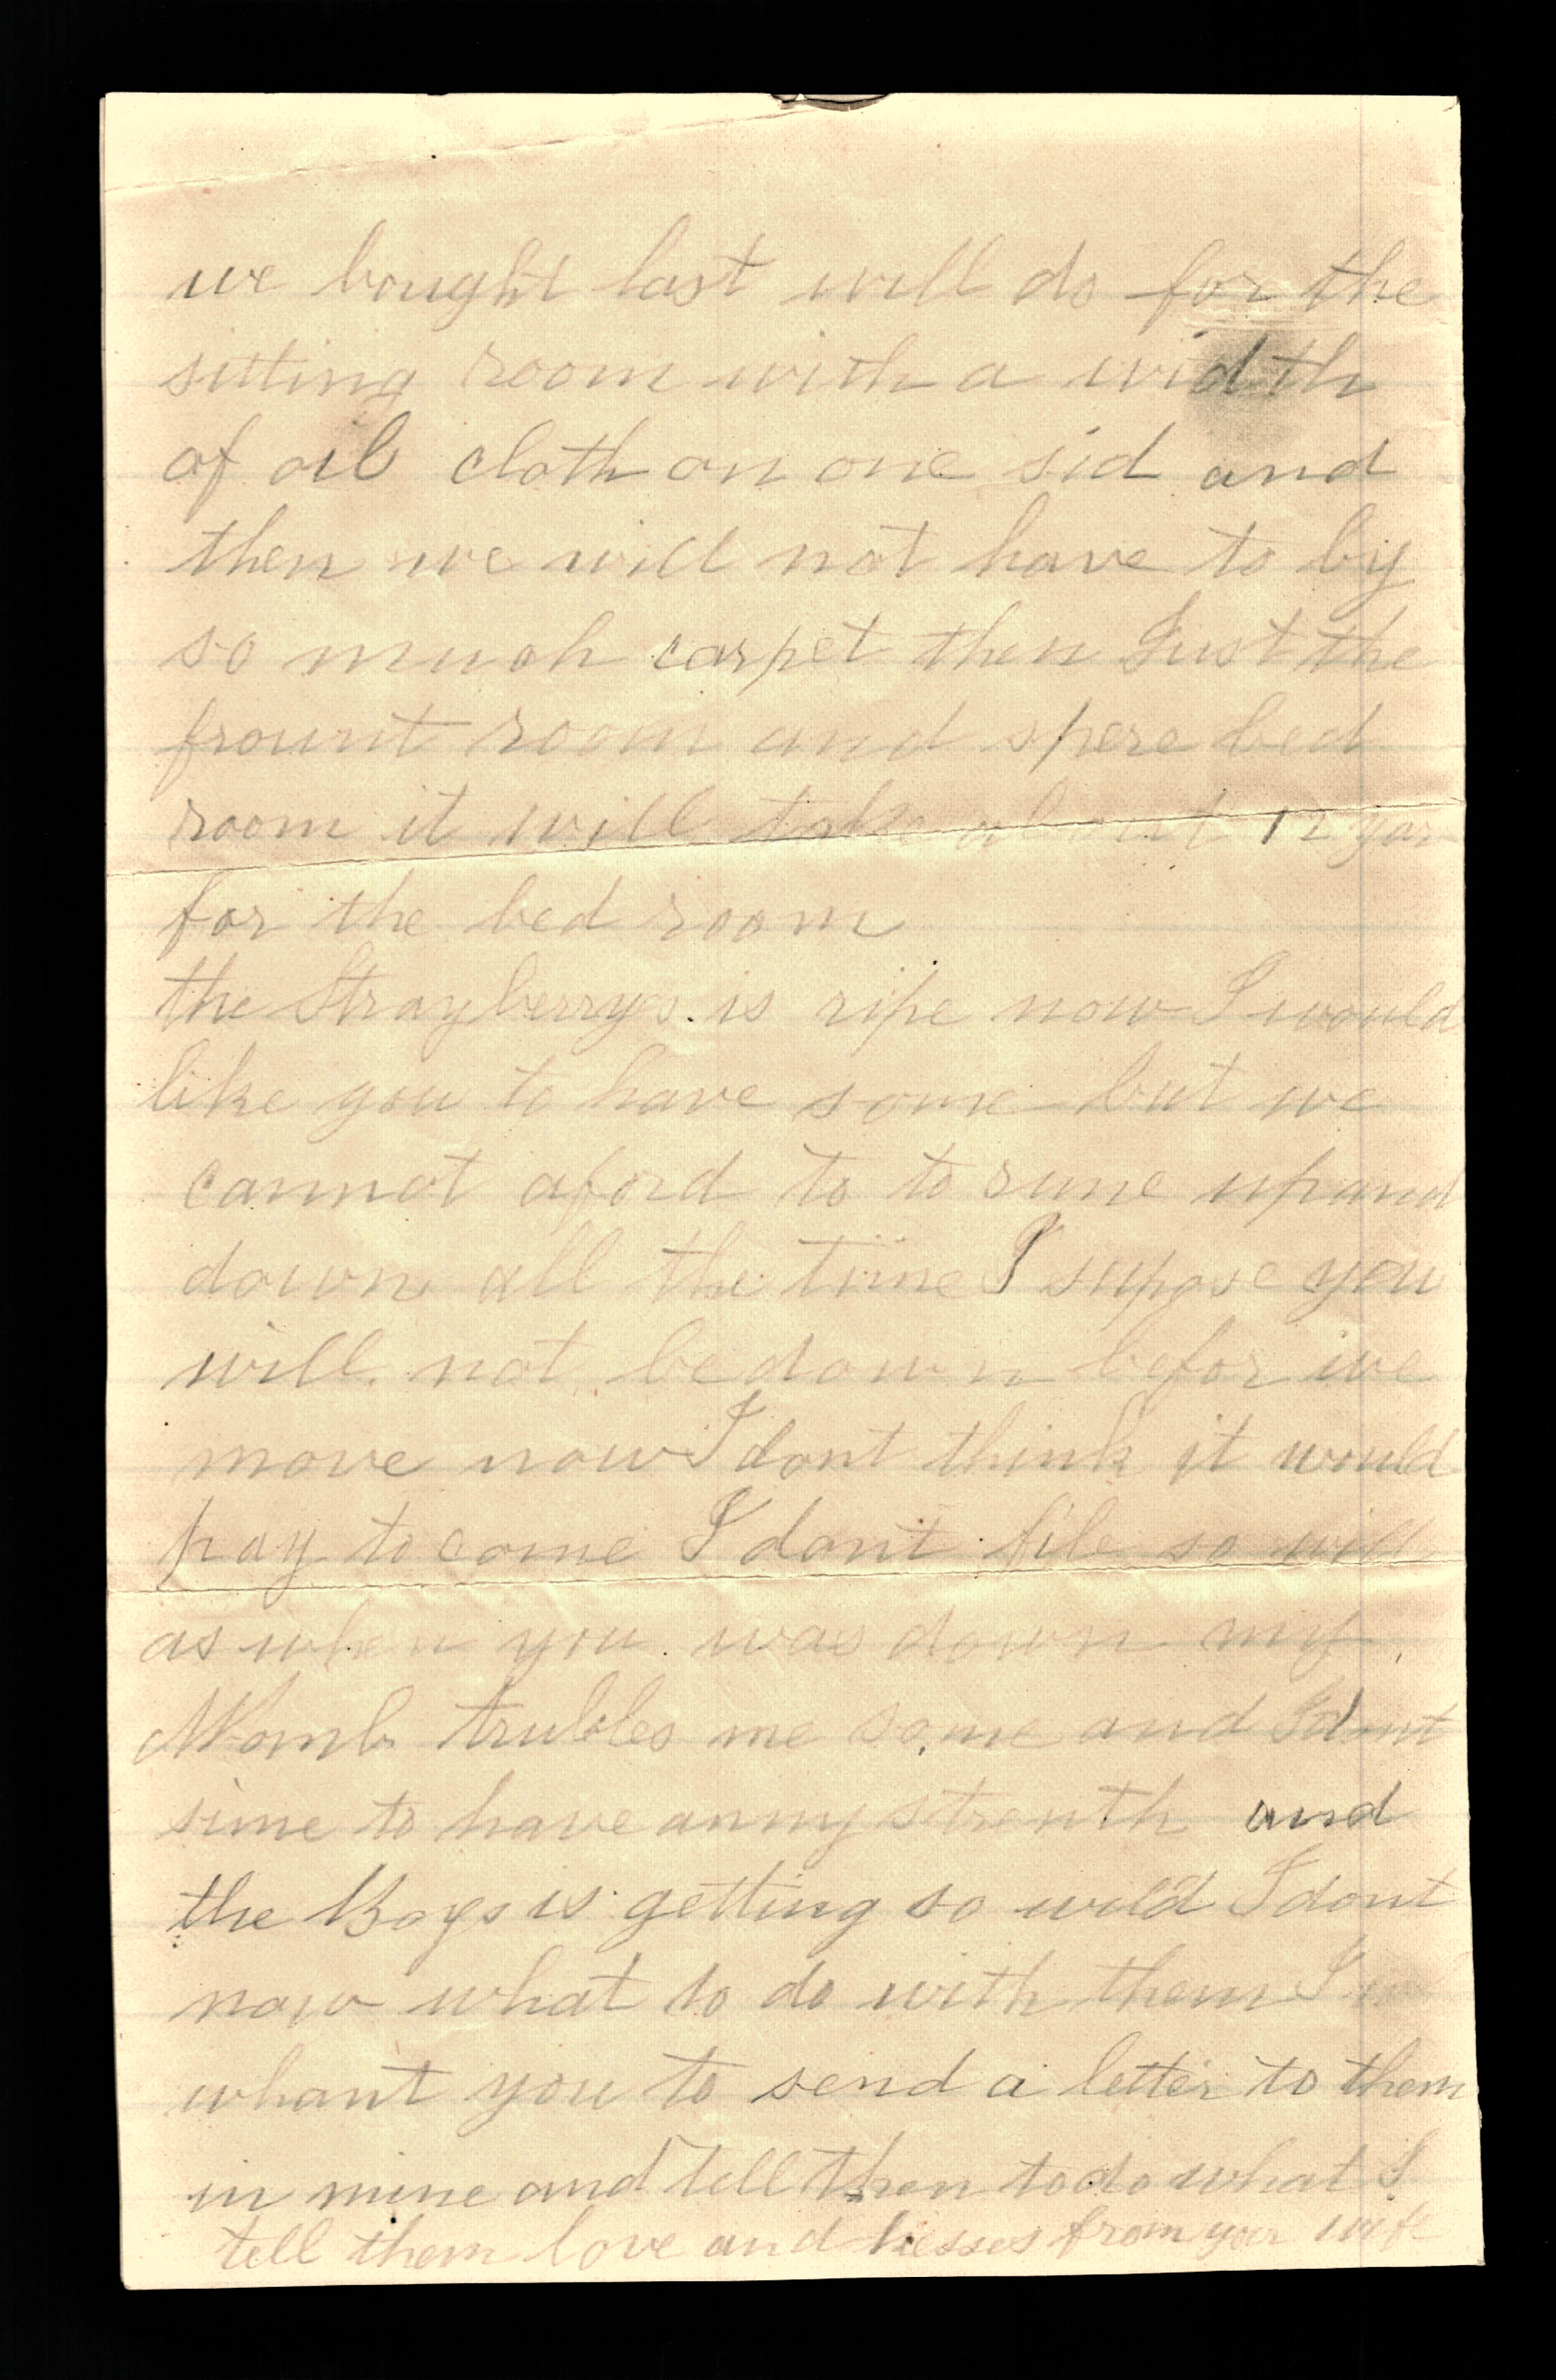 we bought last will do for the
sitting room with a width
of oil cloth on one sid and
then we will not have to by
so much carpet then Just the
frount room and spere bed
room it will take about 12 yar
for the bed room
the Strayberrys is ripe now I would
like you to have some but we
cannot aford to to rune up and
down all the time I supose you
will not be down befor we
move now I dont think it would
pay to come I dont file so will
as when you was down my
Womb trubles me some and I dont
sime to have anny strenth and
the Boys is getting so wild I dont
now what to do with them I w
whant you to send a letter to them
in mine and tell then to do what I
tell them love and kesses from your wife